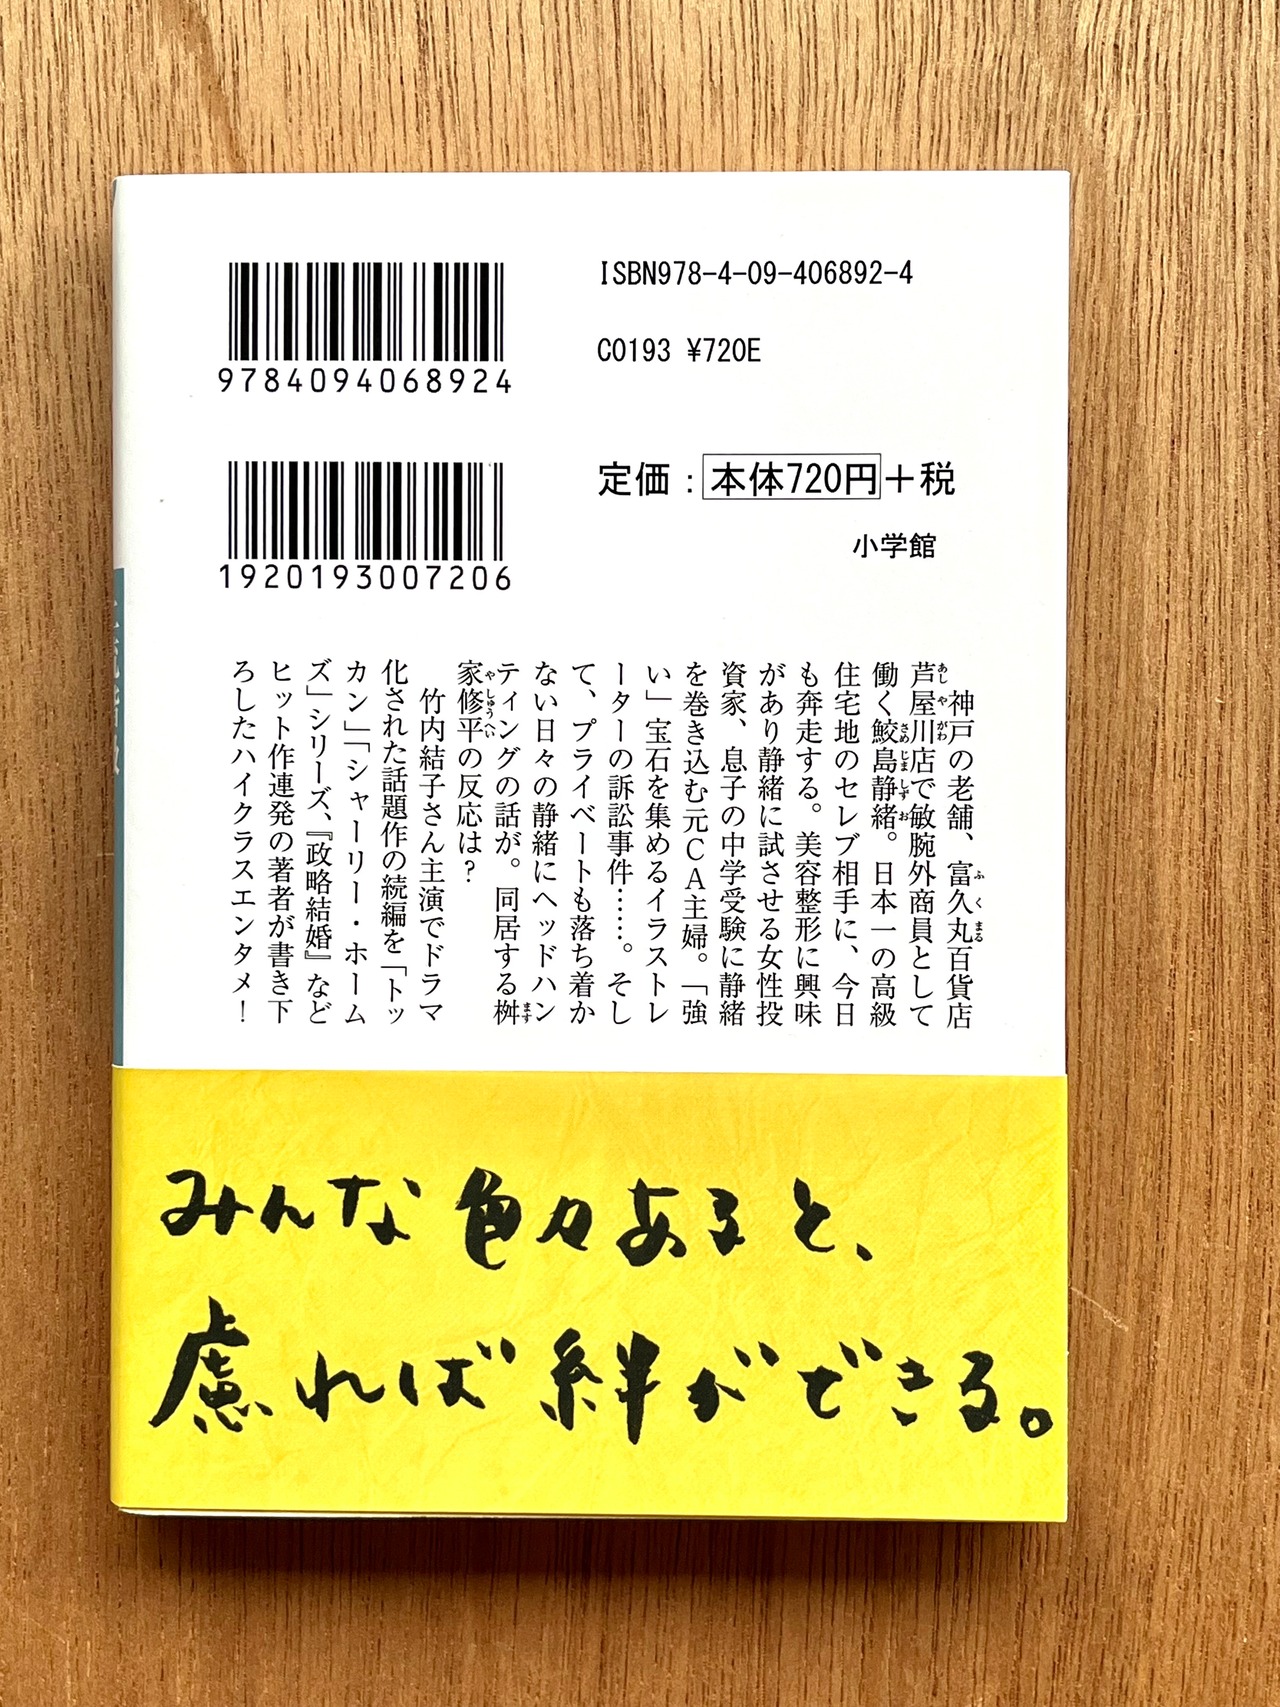 9784094068924
ISBN978-4-09-406892-4
C0193 ¥720E
1920193007206
定価：本体720円＋税
小学館
神戸の老舗、富久丸百貨店
芦屋川店で敏腕外商員として
働く鮫島静緒。日本一の高級
住宅地のセレブ相手に、今日
も奔走する。美容整形に興味
があり静緒に試させる女性投
資家、息子の中学受験に静緒
を巻き込む元ＣＡ主婦。「強
い」宝石を集めるイラストレ
ーターの訴訟事件……。そし
て、プライベートも落ち着か
ない日々の静緒にヘッドハン
ティングの話が。同居する桝
家修平の反応は？
竹内結子さん主演でドラマ
化された話題作の続編を「トッ
カン」「シャーリー・ホーム
ズ」シリーズ、『政略結婚』など
ヒット作連発の著者が書き下
ろしたハイクラスエンタメ！
みんな色々あると、
慮れば絆ができる。